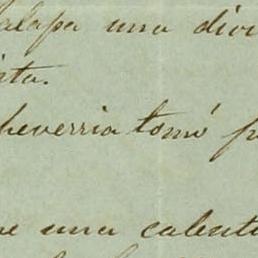 alapa una divi
ista.
heverria tomó p
e una calentu